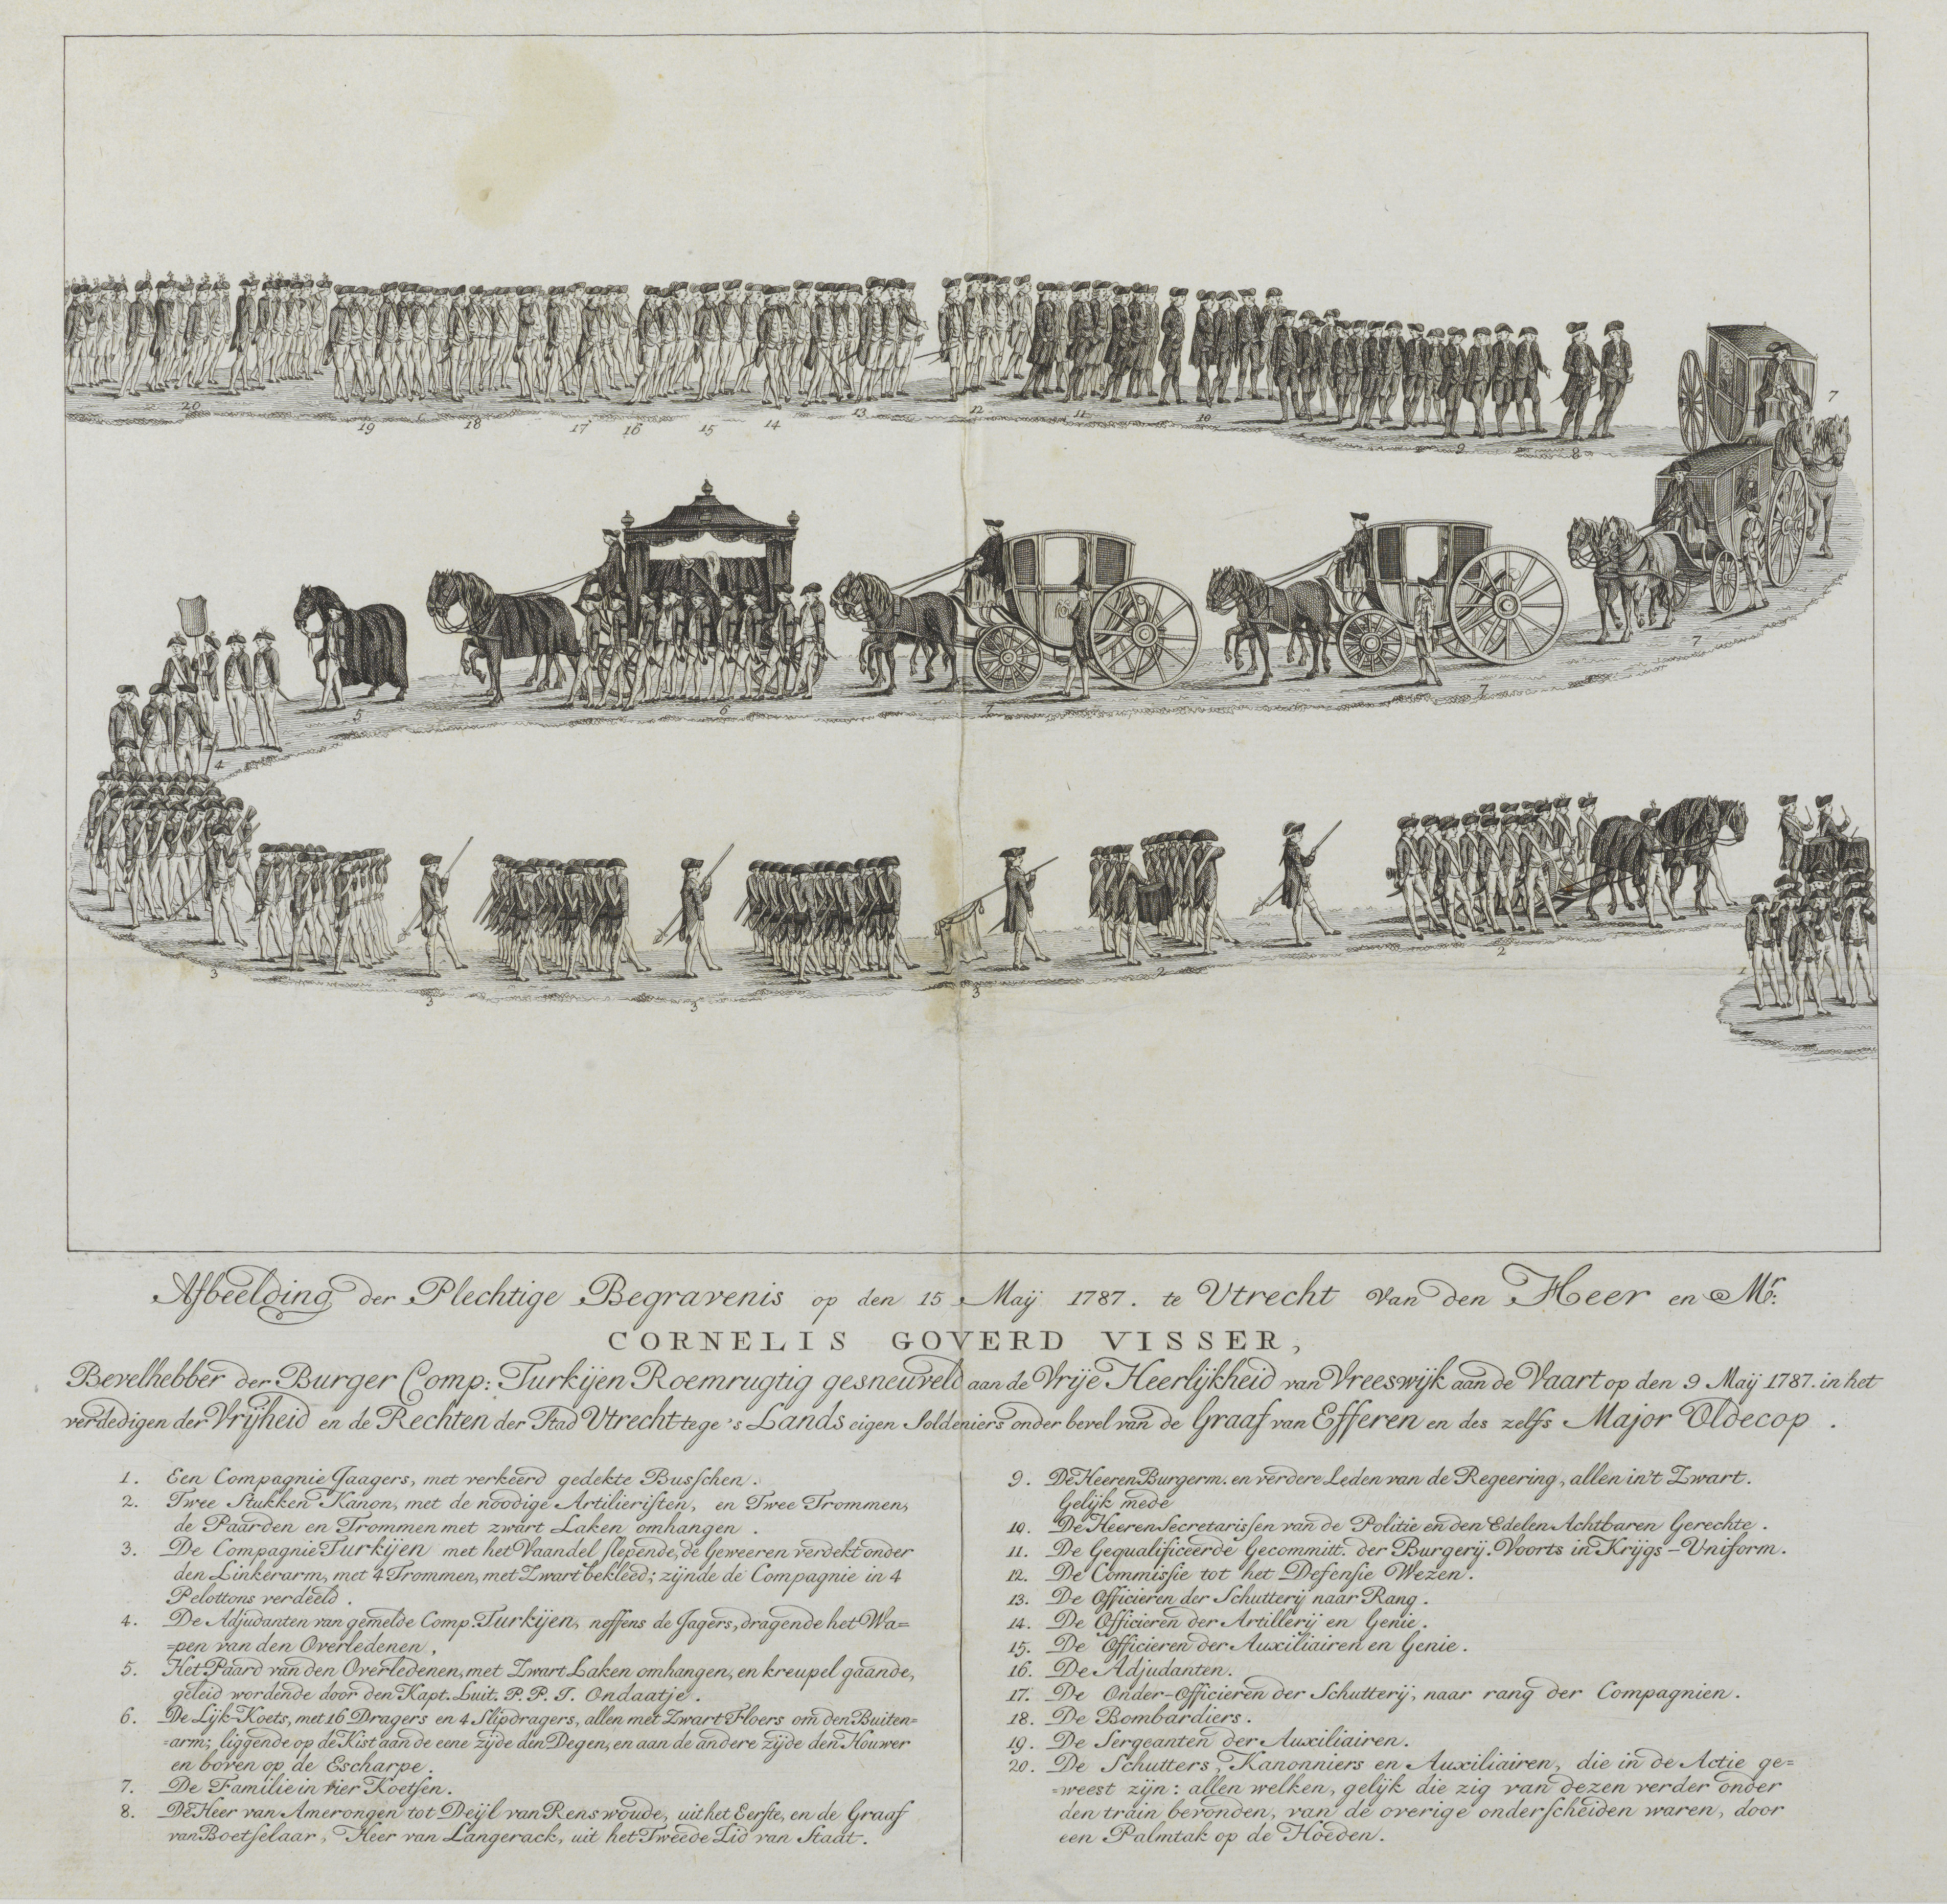 20 19 18 17 16 15 14 13 12 11 10 9 8 7
5 6 7 7 7
4
3 3 3 3 2 2 1
Afbeelding der Plechtige Begravenis op den 15 Maÿ 1787. te Utrecht van den Heer en Mr.
CORNELIS GOVERD VISSER,
Bevelhebber der Burger Comp: Turkijen Roemrugtig gesneuveld aan de Vrije Heerlijkheid van Vreeswijk aan de Vaart op den 9 Maÿ 1787. in het
verdedigen der Vrijheid en de Rechten der Stad Utrecht tege 's Lands eigen Soldeniers onder bevel van de Graaf van Efferen en des zelfs Major Oldecop.
1. Een Compagnie Jaagers, met verkeerd gedekte Busschen.
2. Twee Stukken Kanon, met de noodige Artilieristen, en Twee Trommen,
de Paarden en Trommen met zwart Laken omhangen.
3. De Compagnie Turkijen met het Vaandel slepende, de Geweeren verdekt onder
den Linkerarm, met 4 Trommen, met Zwart bekleed; zijnde de Compagnie in 4
Pelottons verdeeld.
4. De Adjudanten van gemelde Comp. Turkijen, neffens de Jagers, dragende het Wa=
=pen van den Overledenen.
5. Het Paard van den Overledenen, met Zwart Laken omhangen, en kreupel gaande,
geleid wordende door den Kapt. Luit. P. P. J. Ondaatje.
6. De Lijk-Koets, met 16 Dragers en 4 Slipdragers, allen met Zwart Floers om den Buiten=
=arm; liggende op de Kist aan de eene zijde den Degen, en aan de andere zijde den Houwer
en boven op de Escharpe.
7. De Familie in vier Koetsen.
8. De Heer van Amerongen tot Deijl van Renswoude, uit het Eerste, en de Graaf
van Boetselaar, Heer van Langerack, uit het Tweede Lid van Staat.
9. De Heeren Burgerm. en verdere Leden van de Regeering, allen in't Zwart.
Gelijk mede
10. De Heeren Secretarissen van de Politie en den Edelen Achtbaren Gerechte.
11. De Gequalificeerde Gecommitt. der Burgerij. Voorts in Krijgs-Uniform.
12. De Commissie tot het Defensie Wezen.
13. De Officieren der Schutterij naar Rang.
14. De Officieren der Artillerij en Genie.
15. De Officieren der Auxiliairen en Genie.
16. De Adjudanten.
17. De Onder-Officieren der Schutterij, naar rang der Compagnien.
18. De Bombardiers.
19. De Sergeanten der Auxiliairen.
20. De Schutters, Kanonniers en Auxiliairen, die in de Actie ge=
=weest zijn: allen welken, gelijk die zig van dezen verder onder
den train bevonden, van de overige onderscheiden waren, door
een Palmtak op de Hoeden.